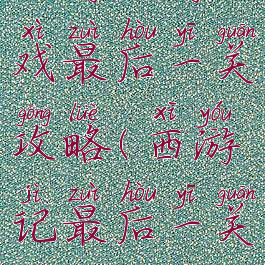 xì zuì hòu yī guān
戏最后一关
gōng lüè xī yóu
攻略(西游
jì zuì hòu yī guān
记最后一关